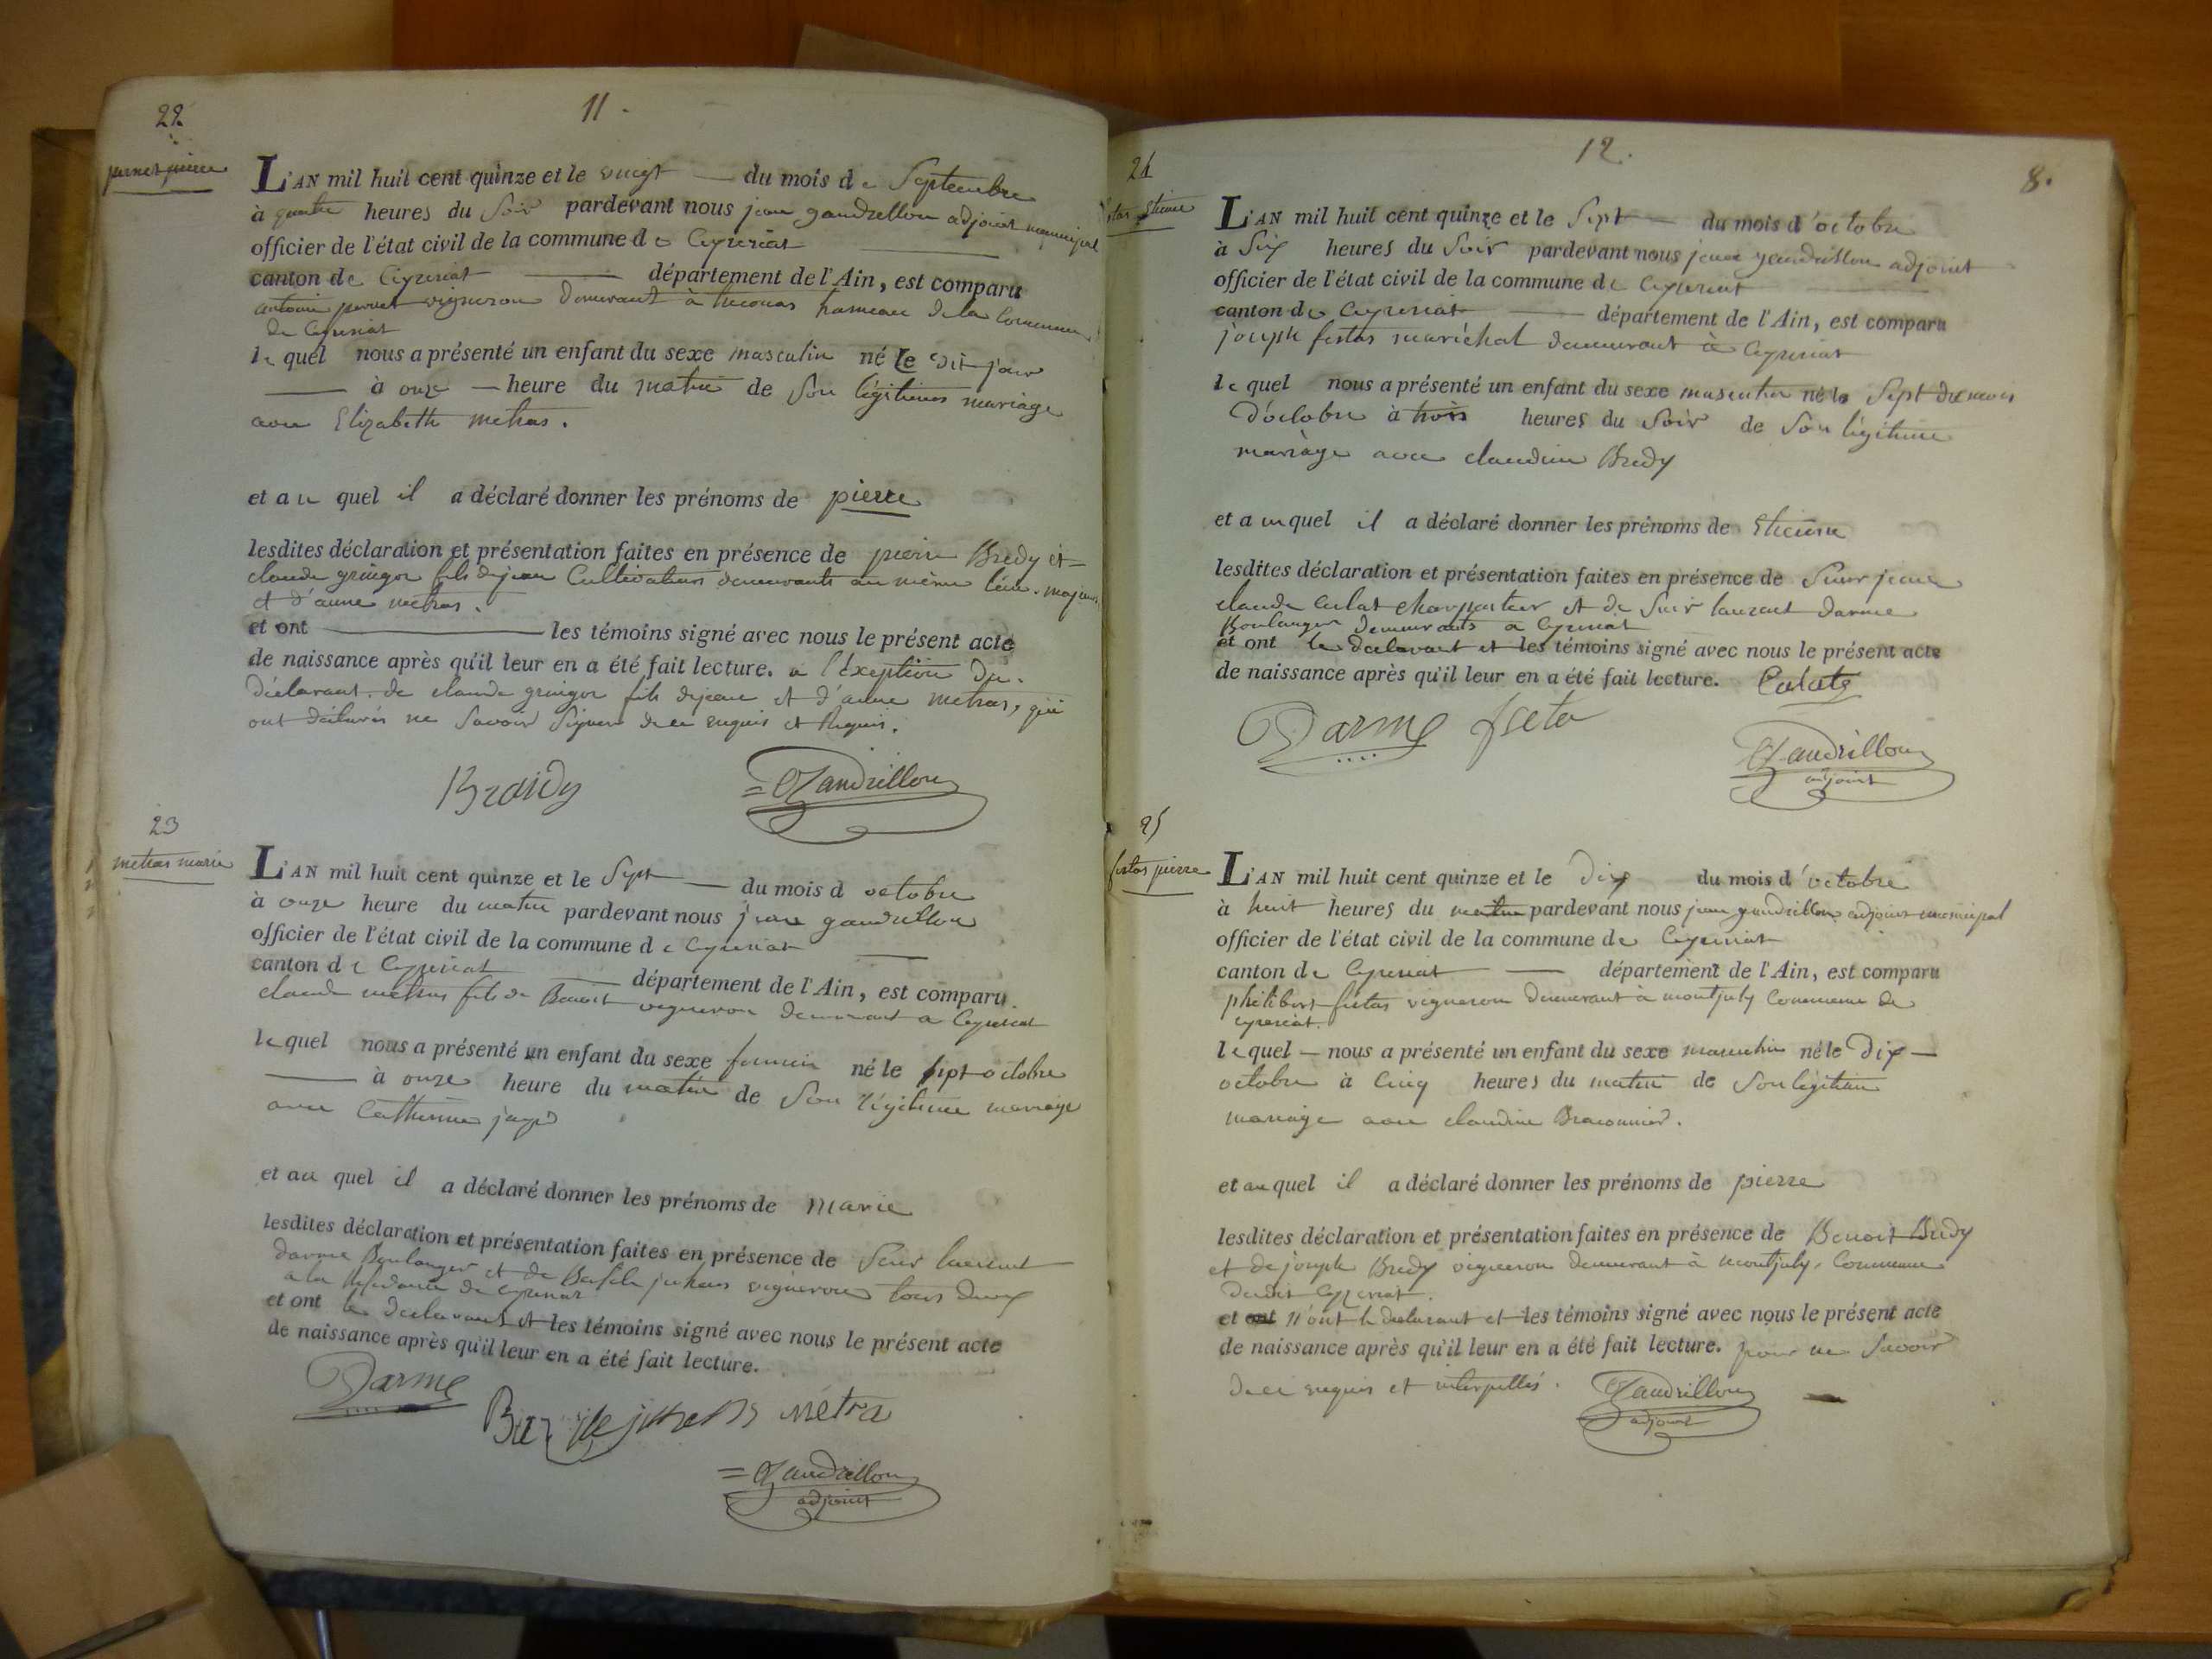 22
11.
pernet pierre
L'AN mil huit cent quinze et le vingt du mois de Septembre
à quatre heures du Soir pardevant nous jean gandrillon adjoint municipal
officier de l'état civil de la commune de Ceyzeriat
canton de Ceyzeriat département de l'Ain, est comparu
antoine pernet vigneron demeurant à hameau de la Commune
de Ceyzeriat
le quel nous a présenté un enfant du sexe masculin né le dit jour
à onze heure du matin de Son légitimes mariage
avec Elizabeth metras.
et au quel il a déclaré donner les prénoms de pierre
lesdites déclaration et présentation faites en présence de pierre Bredy et
claude gringoz fils de jean Cultivateurs demeurants au même lieu. majeurs
et d'anne metras.
et ont les témoins signé avec nous le présent acte
de naissance après qu'il leur en a été fait lecture. a l'Exeption du
déclarant. de claude gringoz fils de jean et d'anne metras, qui
ont déclarés ne Savoir Signer de ce enquis et Requis.
Braidy
Gandrillon
23
metras marie
L'AN mil huit cent quinze et le Sept du mois d octobre
à onze heure du matin pardevant nous jean gandrillon
officier de l'état civil de la commune de Ceyzeriat
canton de Ceyzeriat département de l'Ain, est comparu
claude metras fils de Benoit vigneron demeurant a Ceyzeriat
le quel nous a présenté un enfant du sexe feminin né le Sept octobre
à onze heure du matin de Son légitime mariage
avec Catherine
et au quel il a déclaré donner les prénoms de marie
lesdites déclaration et présentation faites en présence de Sieur laurent
darme Boulanger et de Basile juhans vigneron tous deux
a la Residance de Ceyzeriat
et ont le declarant et les témoins signé avec nous le présent acte
de naissance après qu'il leur en a été fait lecture.
Darme
metra
Gandrillon
adjoint
12.
8.
24
festas Etienne
L'AN mil huit cent quinze et le Sept du mois d'octobre
à Six heures du Soir pardevant nous jean gandrillon adjoint
officier de l'état civil de la commune de Ceyzeriat
canton de Ceyzeriat département de l'Ain, est comparu
joseph festas maréchal demeurant à Ceyzeriat
le quel nous a présenté un enfant du sexe masculin né le Sept du mois
D'octobre à trois heures du Soir de Son légitime
mariage avec claudine Bredy
et auquel il a déclaré donner les prénoms de Etienne
lesdites déclaration et présentation faites en présence de Sieur jean
claude Culat Charpentier et de Sieur laurent darme
Boulanger demeurants a Ceyzeriat
et ont le declarant et les témoins signé avec nous le présent acte
de naissance après qu'il leur en a été fait lecture.
Darme
Gandrillon
adjoint
25
festas pierre
L'AN mil huit cent quinze et le Dix du mois d'octobre
à huit heures du matin pardevant nous jean gandrillon adjoint municipal
officier de l'état civil de la commune de Ceyzeriat
canton de Ceyzeriat département de l'Ain, est comparu
philibert festas vigneron demeurant à montjuly Commune de
Ceyzeriat.
le quel nous a présenté un enfant du sexe masculin né le Dix
octobre à Cinq heures du matin de Son légitime
mariage avec claudine Braconnier.
et au quel il a déclaré donner les prénoms de pierre
lesdites déclaration et présentation faites en présence de Benoit Bredy
et de joseph Bredy vigneron demeurant à montjuly, Commune
dudit Ceyzeriat.
et ont n'ont le declarant et les témoins signé avec nous le présent acte
de naissance après qu'il leur en a été fait lecture. pour ne Savoir
de ce enquis et interpellés.
Gandrillon
adjoint